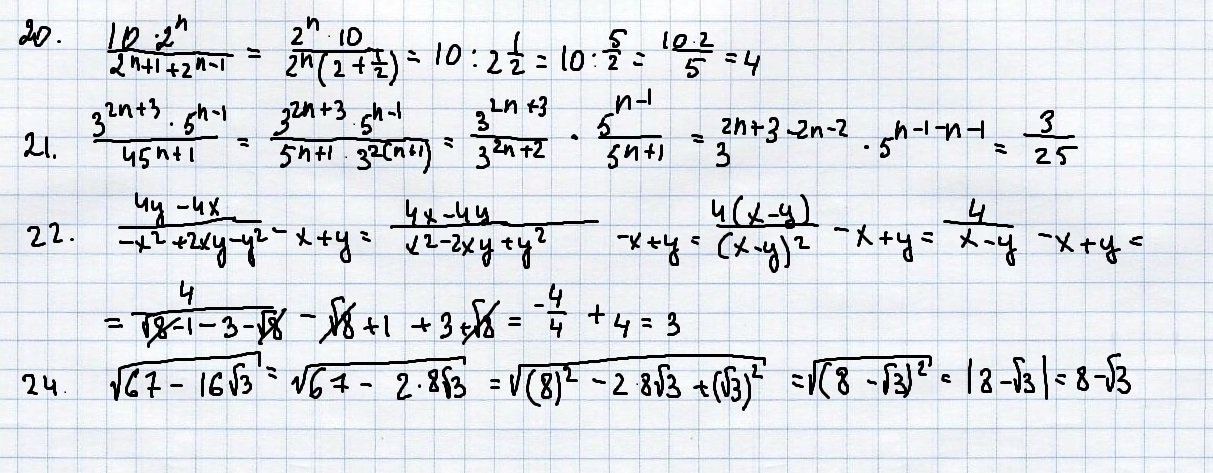 20. (10·2^n)/(2^(n+1)+2^(n-1)) = (2^n·10)/(2^n(2+1/2)) = 10 : 2 1/2 = 10 : 5/2 = (10·2)/5 = 4
21. (3^(2n+3)·5^(n-1))/(45^(n+1)) = (3^(2n+3)·5^(n-1))/(5^(n+1)·3^(2(n+1))) = (3^(2n+3))/(3^(2n+2)) · (5^(n-1))/(5^(n+1)) = 3^(2n+3-2n-2) · 5^(n-1-n-1) = 3/25
22. (4y-4x)/(-x²+2xy-y²) - x+y = (4x-4y)/(x²-2xy+y²) -x+y = (4(x-y))/((x-y)²) -x+y = 4/(x-y) -x+y =
= 4/(√8-1-3-√8) - √8+1 +3+√8 = -4/4 + 4 = 3
24. √(67-16√3) = √(67-2·8√3) = √((8)²-2·8√3+(√3)²) = √((8-√3)²) = |8-√3| = 8-√3